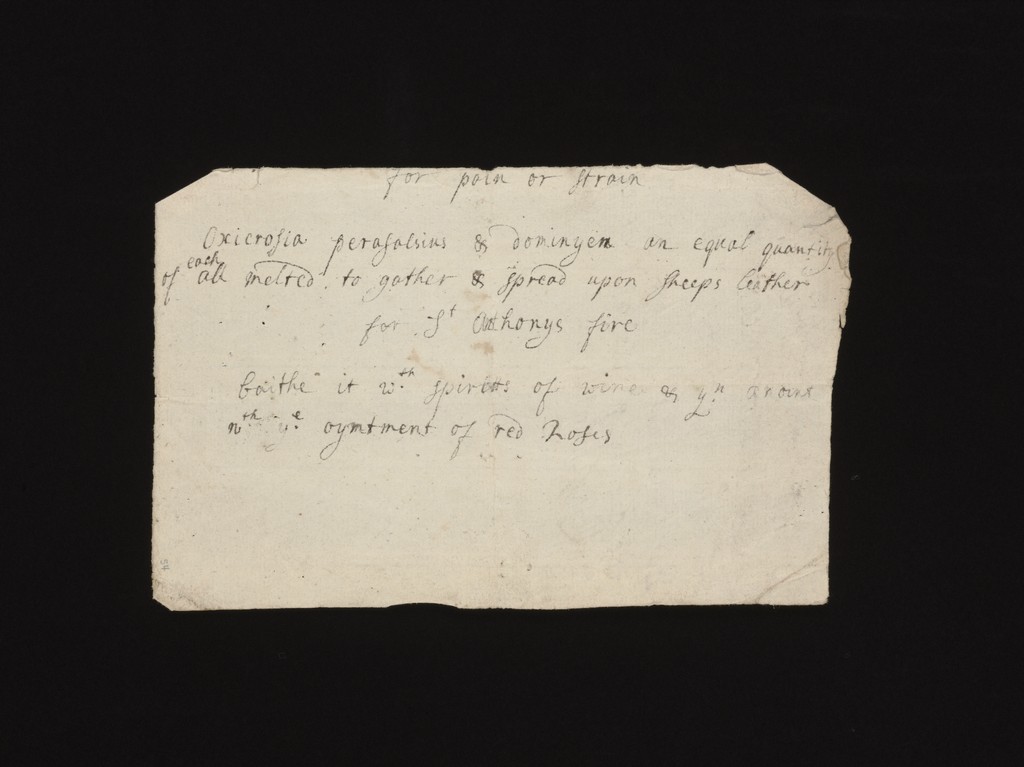 for pain or strain
Oxicrosia perasalsius & dominyen an equal quantity
of each all melted to gather & spread upon sheeps leather
for St Anthonys fire
baithe it wth spirits of wine & yn anoint
wth ye oyntment of red Roses